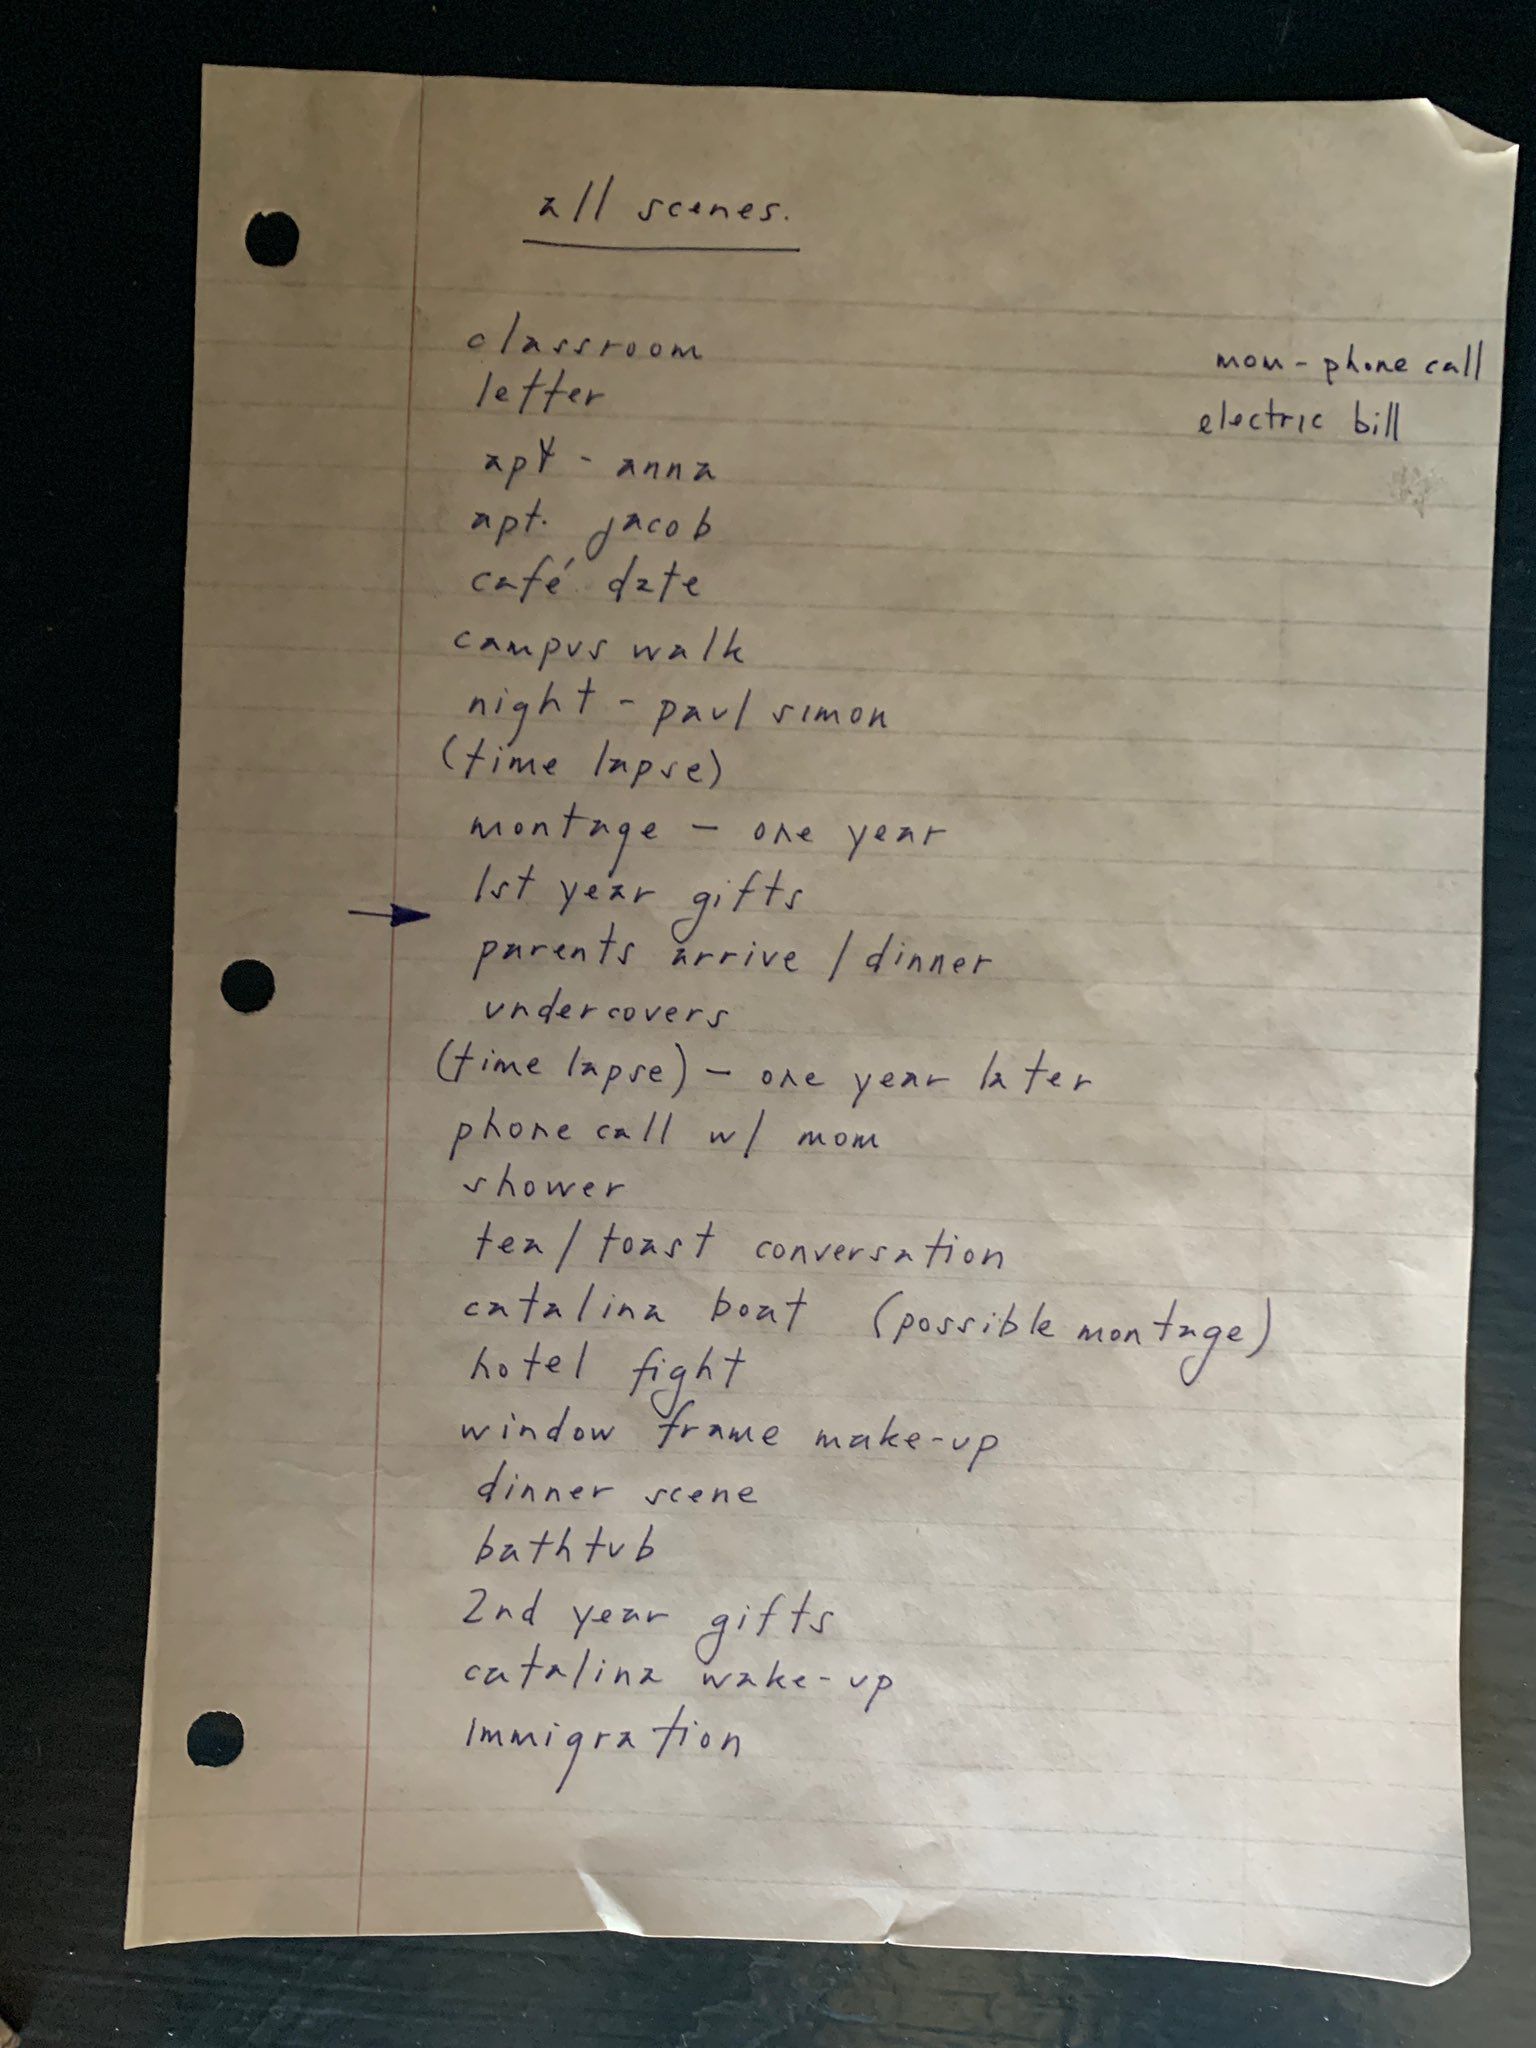 all scenes.
classroom
letter
apt - anna
apt. jacob
café date
campus walk
night - paul simon
(time lapse)
montage - one year
1st year gifts
→
parents arrive / dinner
undercovers
(time lapse) - one year later
phone call w/ mom
shower
tea / toast conversation
catalina boat (possible montage)
hotel fight
window frame make-up
dinner scene
bathtub
2nd year gifts
catalina wake-up
immigration
mom - phone call
electric bill